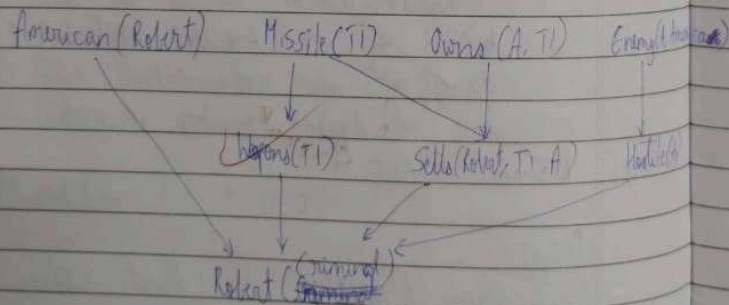 American (Robert) Missile (T1) Owns (A, T1) Enemy(A, America)
Wepons (T1) Sells (Robert, T1, A) Hostile(A)
Robert (Criminal)